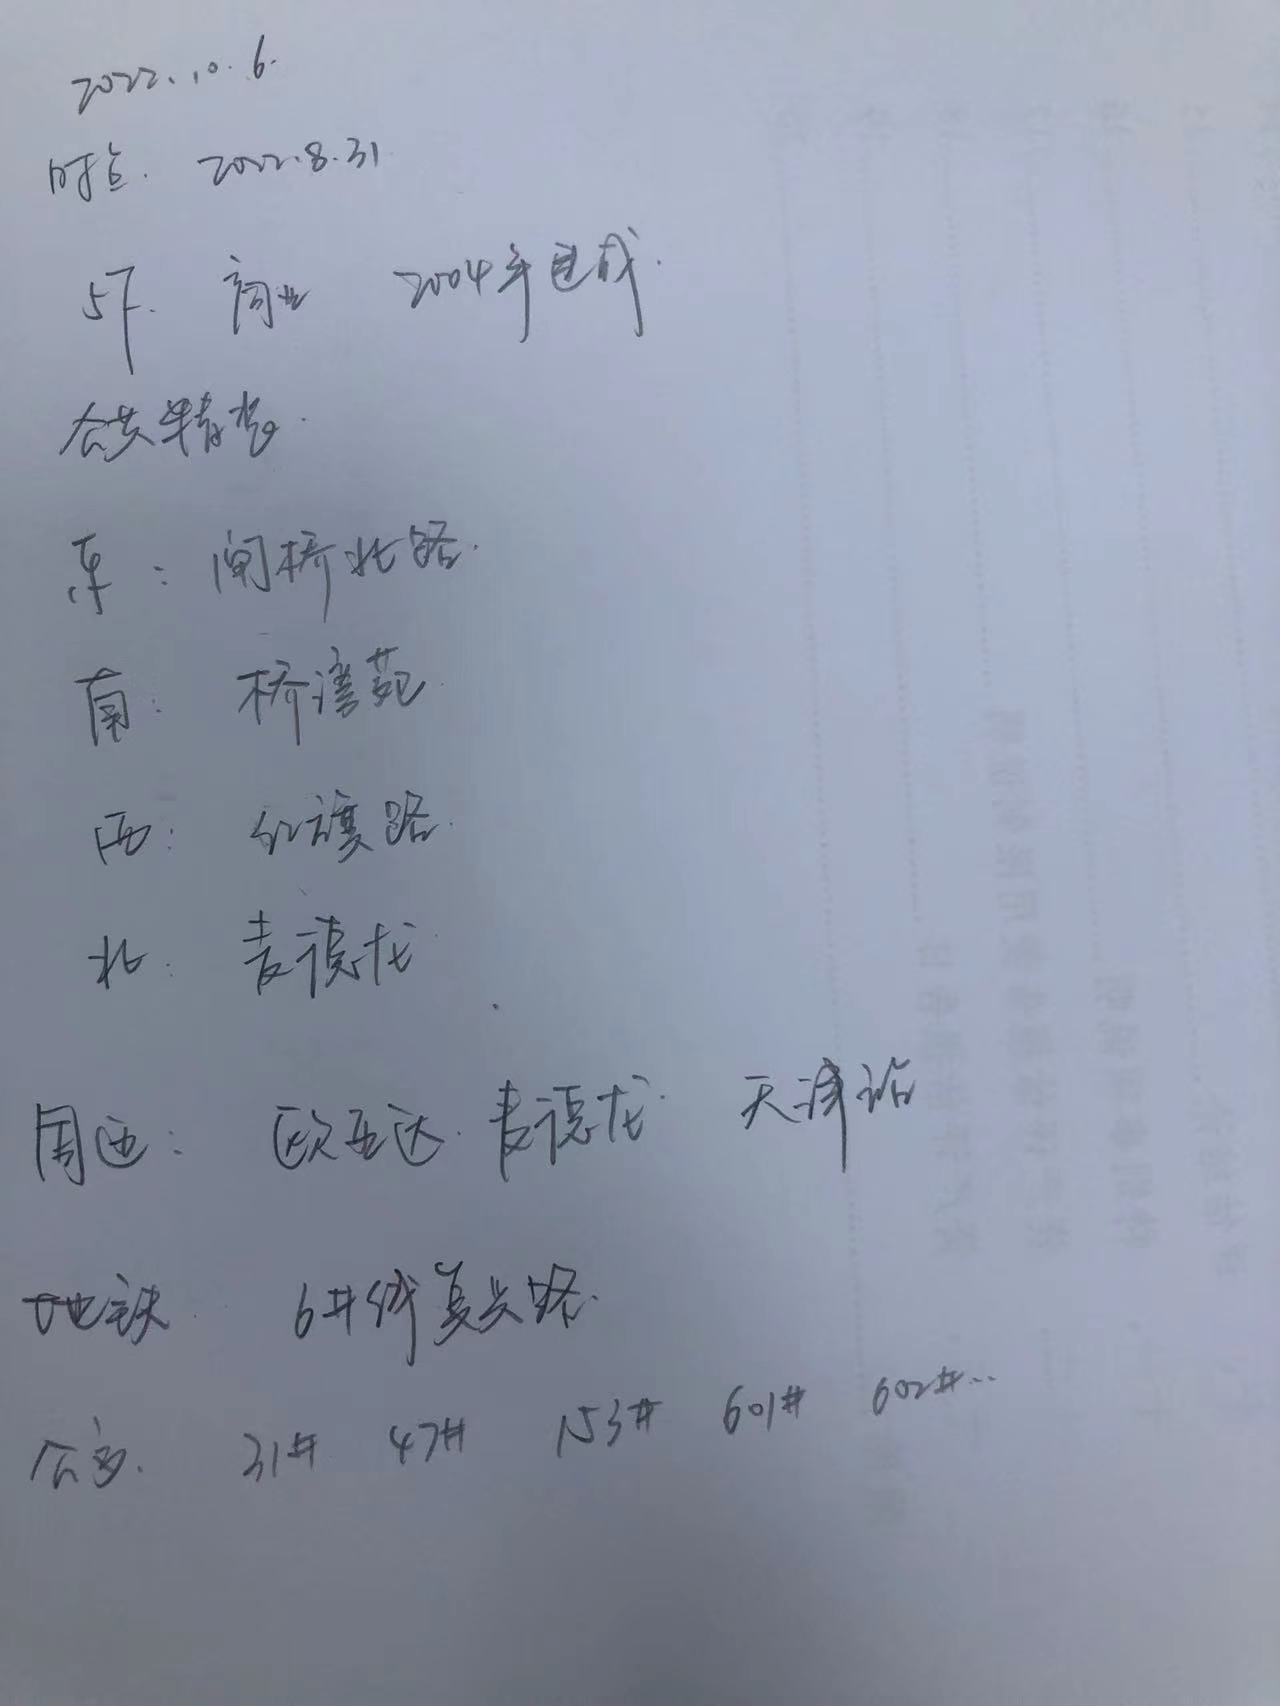 2022.10.6.
时点. 2022.8.31
5F. 商业 2004年建成.
公共精装.
东: 闸桥北路.
南: 桥湾苑
西: 红旗路.
北: 麦德龙
周边: 欧亚达. 麦德龙. 天津站
地铁 6#线复兴路.
公交. 31# 47# 153# 601# 602#...